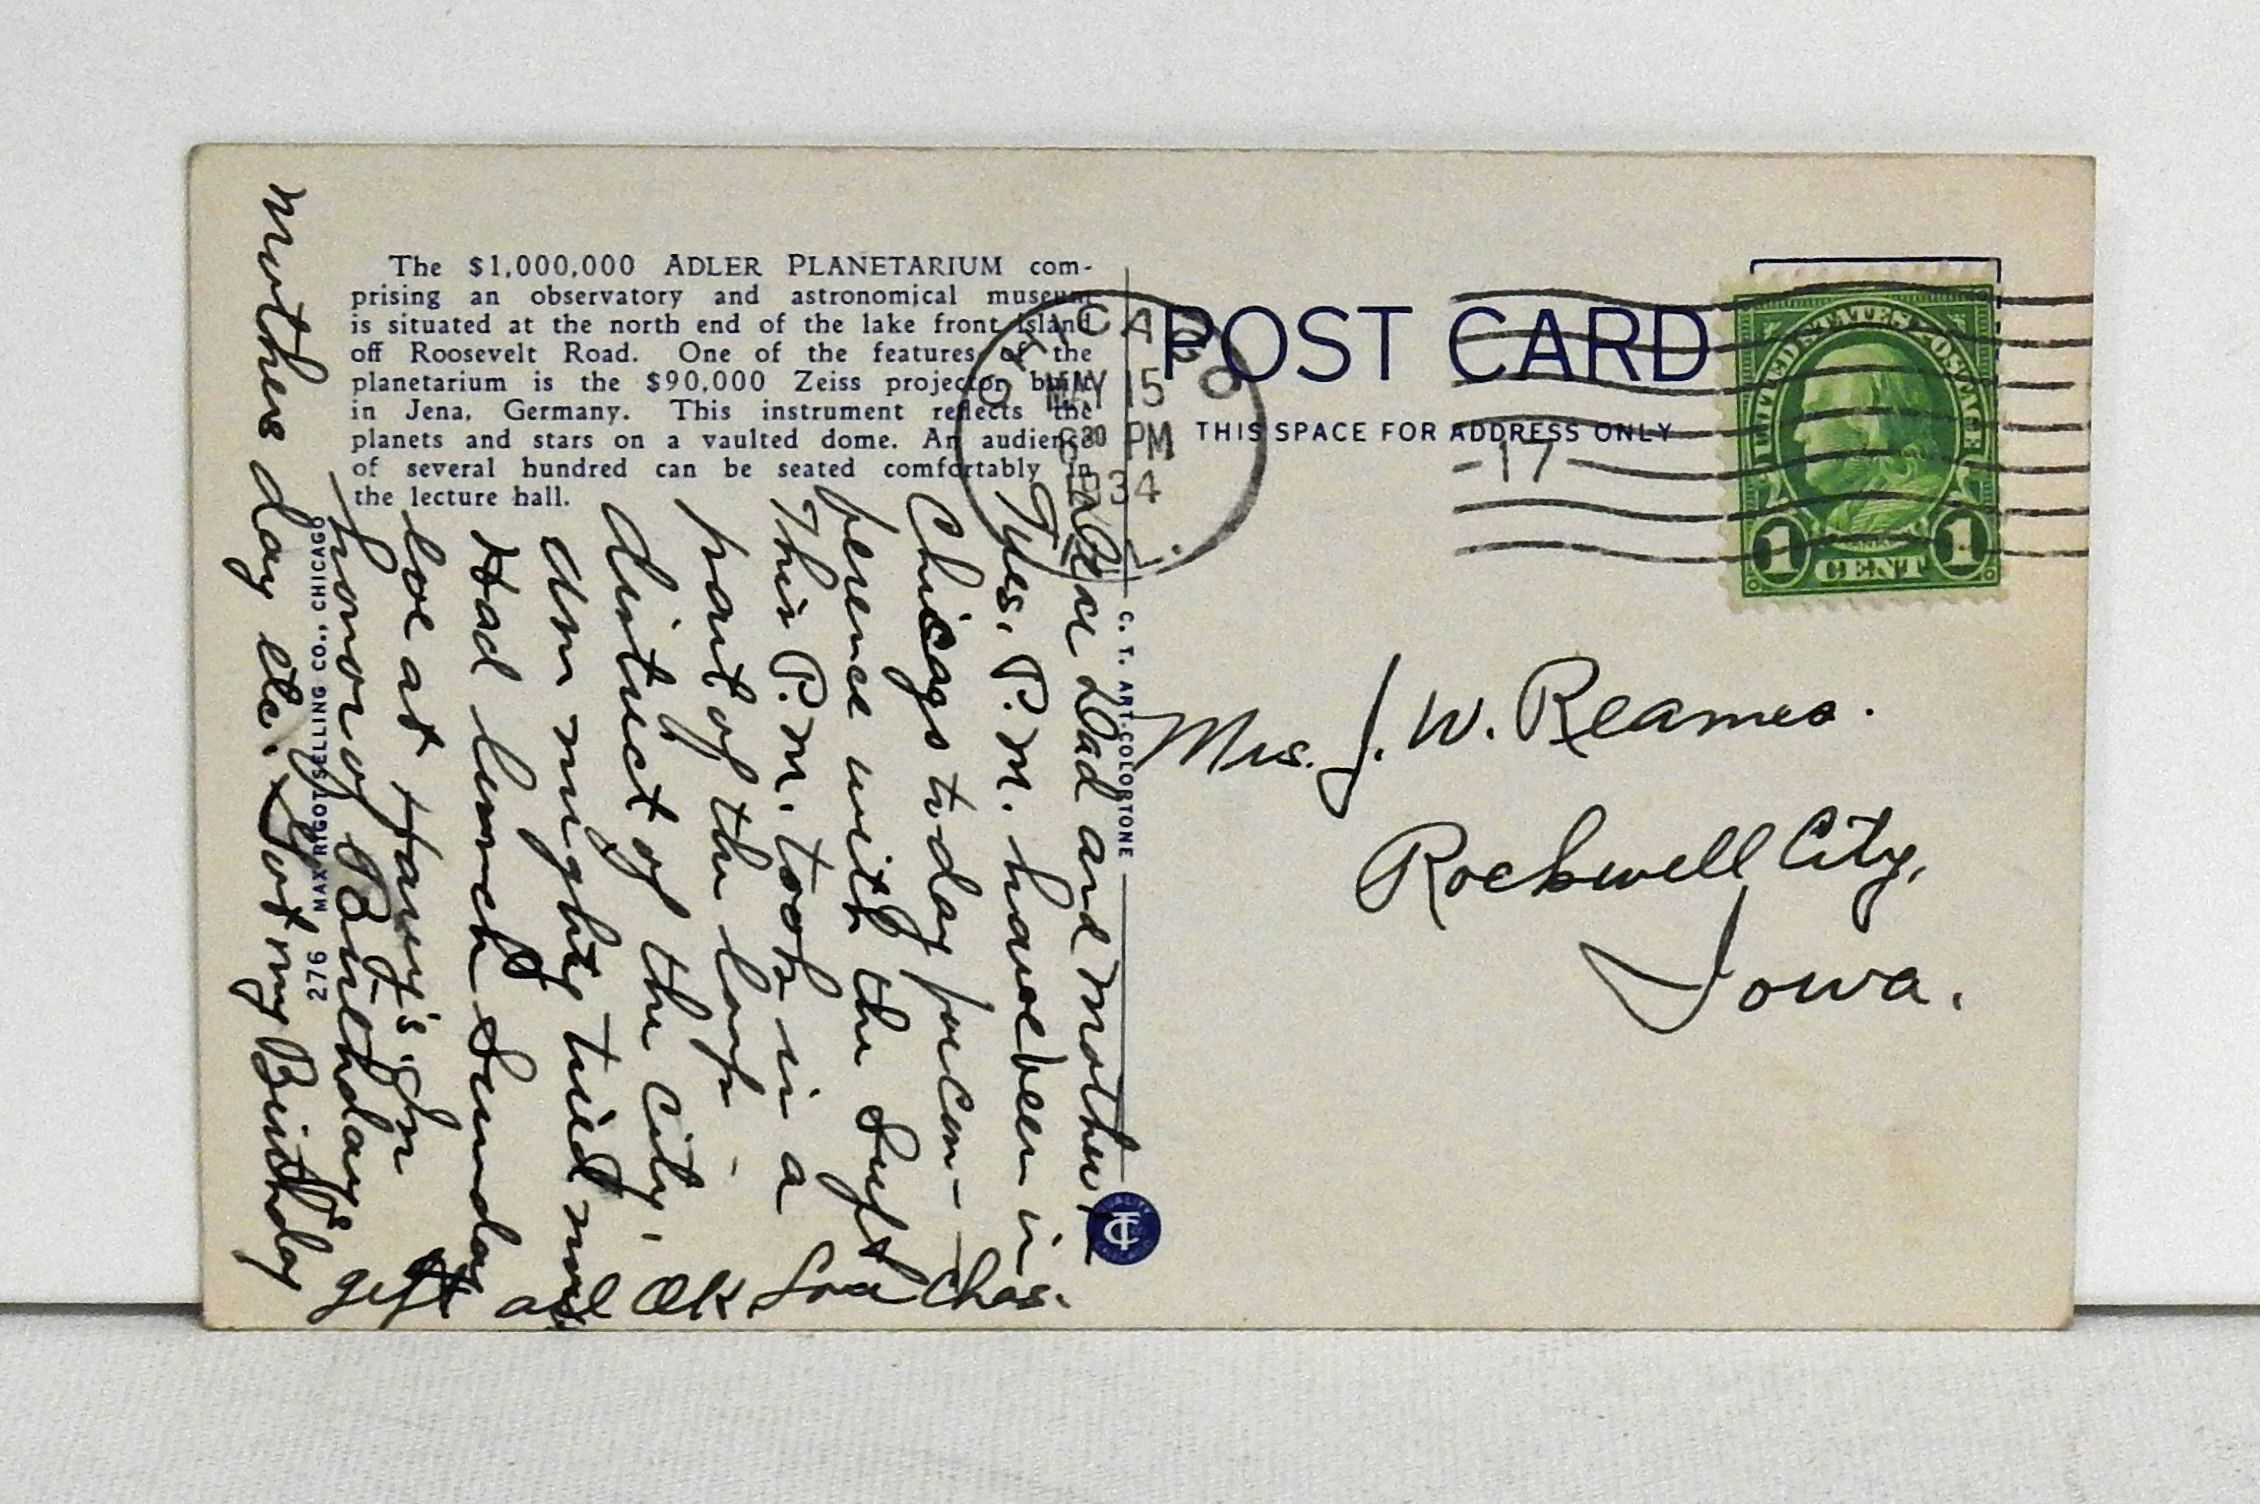 The $1,000,000 ADLER PLANETARIUM com-
prising an observatory and astronomical museum
is situated at the north end of the lake front island
off Roosevelt Road. One of the features of the
planetarium is the $90,000 Zeiss projector built
in Jena, Germany. This instrument reflects the
planets and stars on a vaulted dome. An audience
of several hundred can be seated comfortably in
the lecture hall.
CHICAGO
MAY 15
6 30 PM
1934
ILL.
POST CARD
THIS SPACE FOR ADDRESS ONLY
-17-
UNITED STATES POSTAGE
1 CENT 1
Mrs. J. W. Reames.
Rockwell City,
Iowa.
C. T. ART-COLORTONE
276 MAX RIGOT SELLING CO., CHICAGO
Dad and Mother
Tues. P.M. have been in
Chicago today in con-
ference with the Supt
This P.M. took in a
part of the loop -
district of the city.
Am mighty tired now
Had lunch Sunday
at Harry's. In
honor of Birthday's
Mothers day etc. Got my Birthday
gift all OK Chas.